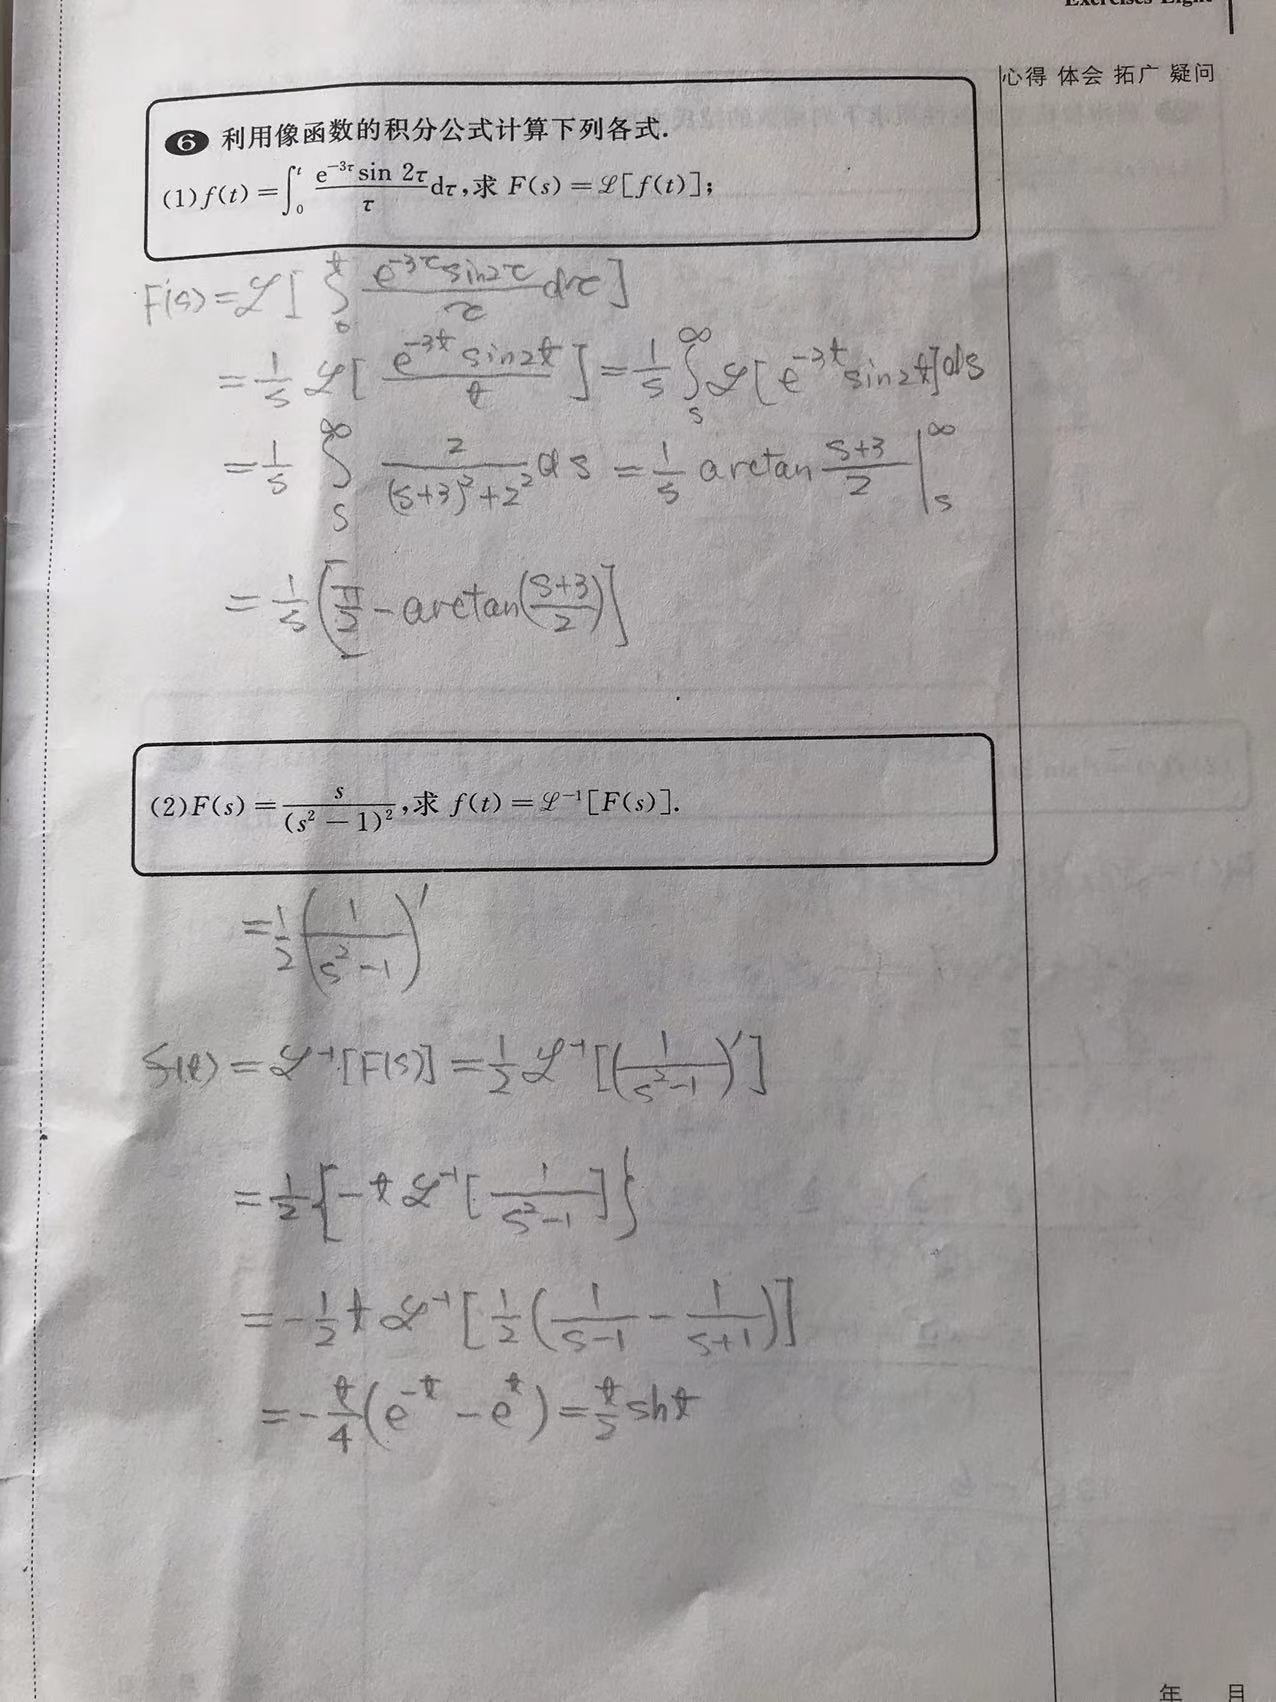 Exercises Eight
心得 体会 拓广 疑问
6 利用像函数的积分公式计算下列各式.
(1) f(t) = ∫₀ᵗ (e^{-3τ} sin 2τ)/τ dτ, 求 F(s) = ℒ[f(t)];
F(s) = ℒ[∫₀ᵗ (e^{-3τ} sin2τ)/τ dτ]
= 1/s ℒ[(e^{-3t} sin2t)/t] = 1/s ∫_s^∞ ℒ[e^{-3t} sin2t] ds
= 1/s ∫_s^∞ 2/((s+3)²+2²) ds = 1/s arctan (s+3)/2 |_s^∞
= 1/s [π/2 - arctan((s+3)/2)]
(2) F(s) = s/(s² - 1)², 求 f(t) = ℒ⁻¹[F(s)].
= 1/2 (1/(s²-1))'
f(t) = ℒ⁻¹[F(s)] = 1/2 ℒ⁻¹[(1/(s²-1))']
= 1/2 {-t ℒ⁻¹[1/(s²-1)]}
= -1/2 t ℒ⁻¹[1/2 (1/(s-1) - 1/(s+1))]
= -t/4 (e^{-t} - e^{t}) = t/2 sht
年 月